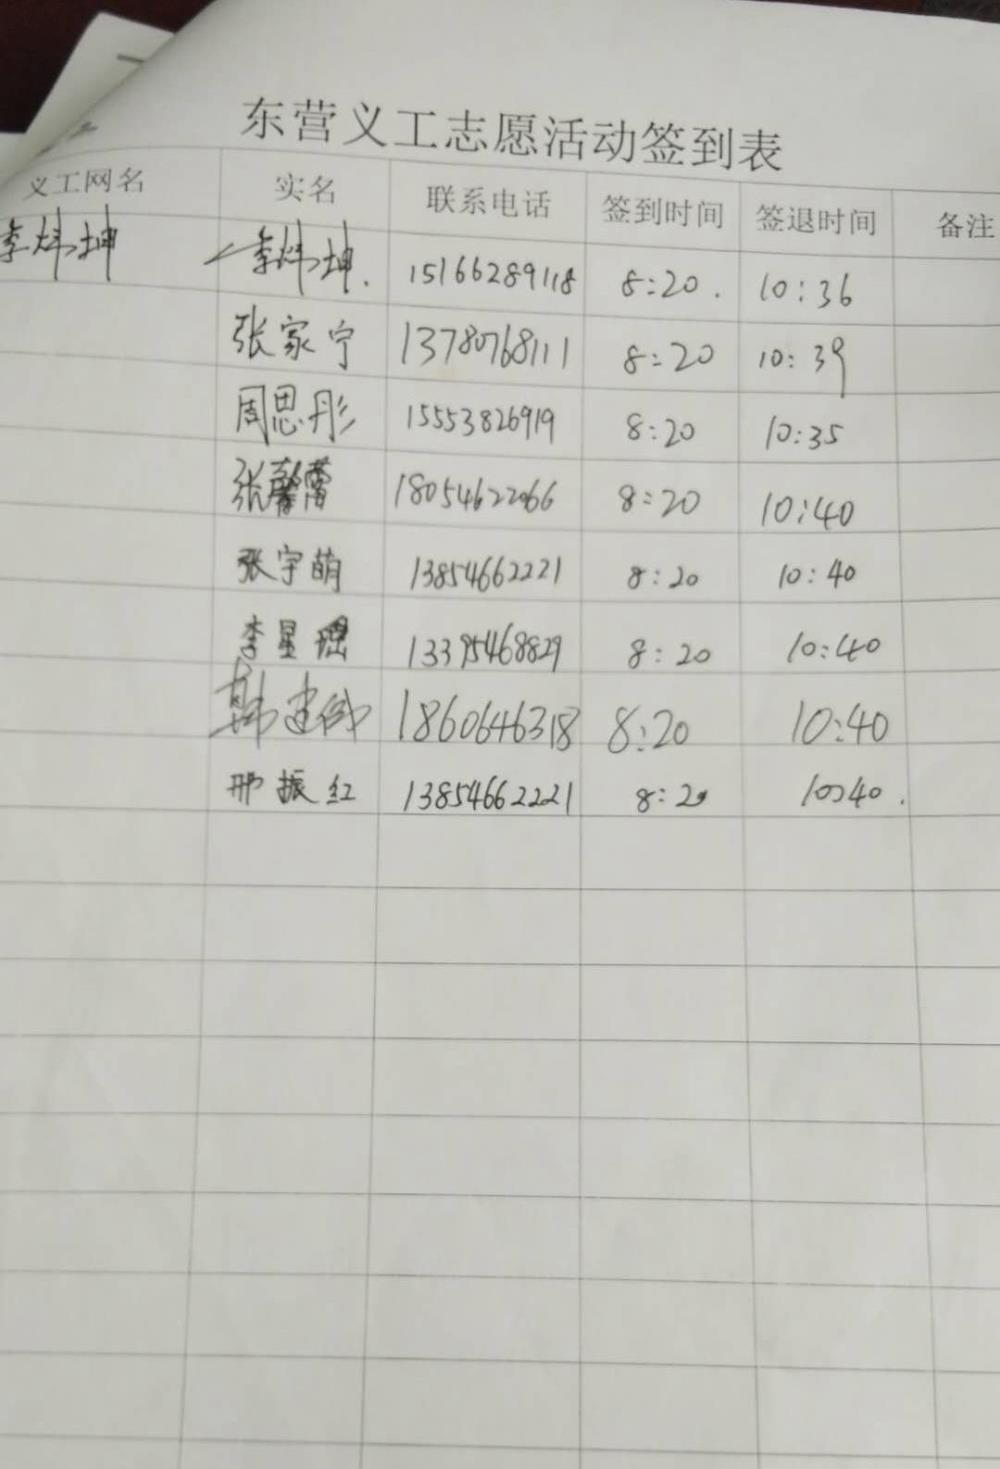 东营义工志愿活动签到表
义工网名 实名 联系电话 签到时间 签退时间 备注
李炜坤 李炜坤. 15166289118 8:20. 10:36
张家宁 13780768111 8:20 10:39
周思彤 15553826919 8:20 10:35
张馨蕾 18054622066 8:20 10:40
张宇萌 13854662221 8:20 10:40
李星 13395468829 8:20 10:40
韩建 1860646318 8:20 10:40
邢振红 13854662221 8:20 10:40.